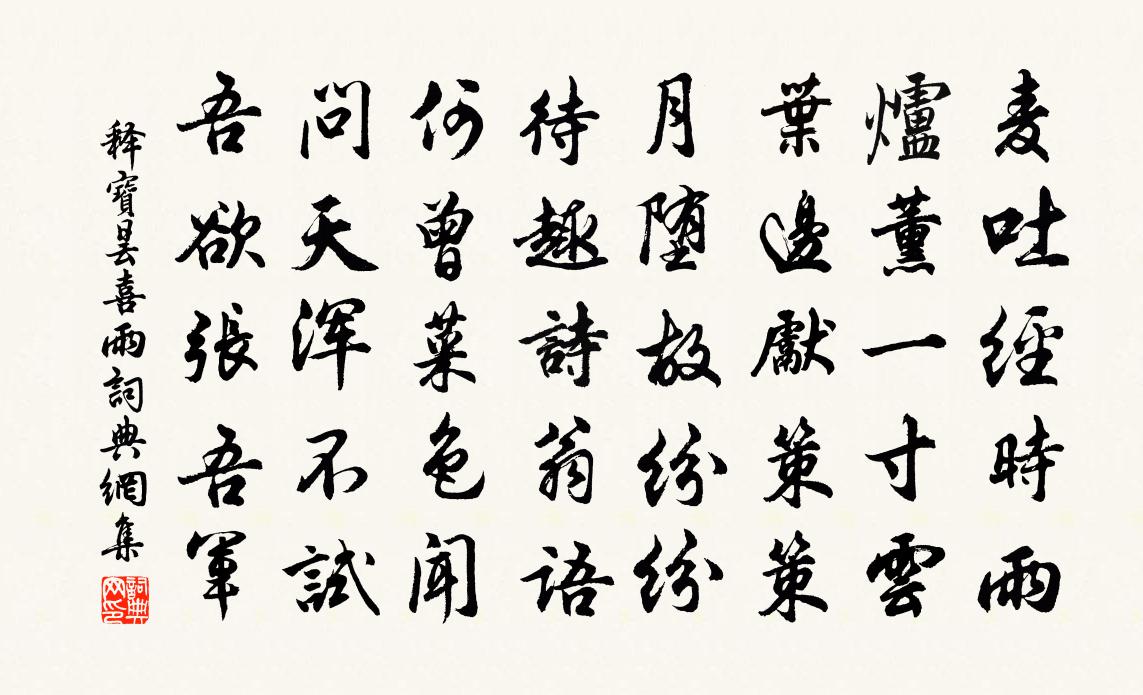 麦吐經時雨
爐薰一寸雲
葉邊獻策策
月堕故紛紛
待趣詩翁語
何曾菜色聞
問天渾不試
吾欲張吾軍
释寶曇喜雨詞典網集
詞典网印